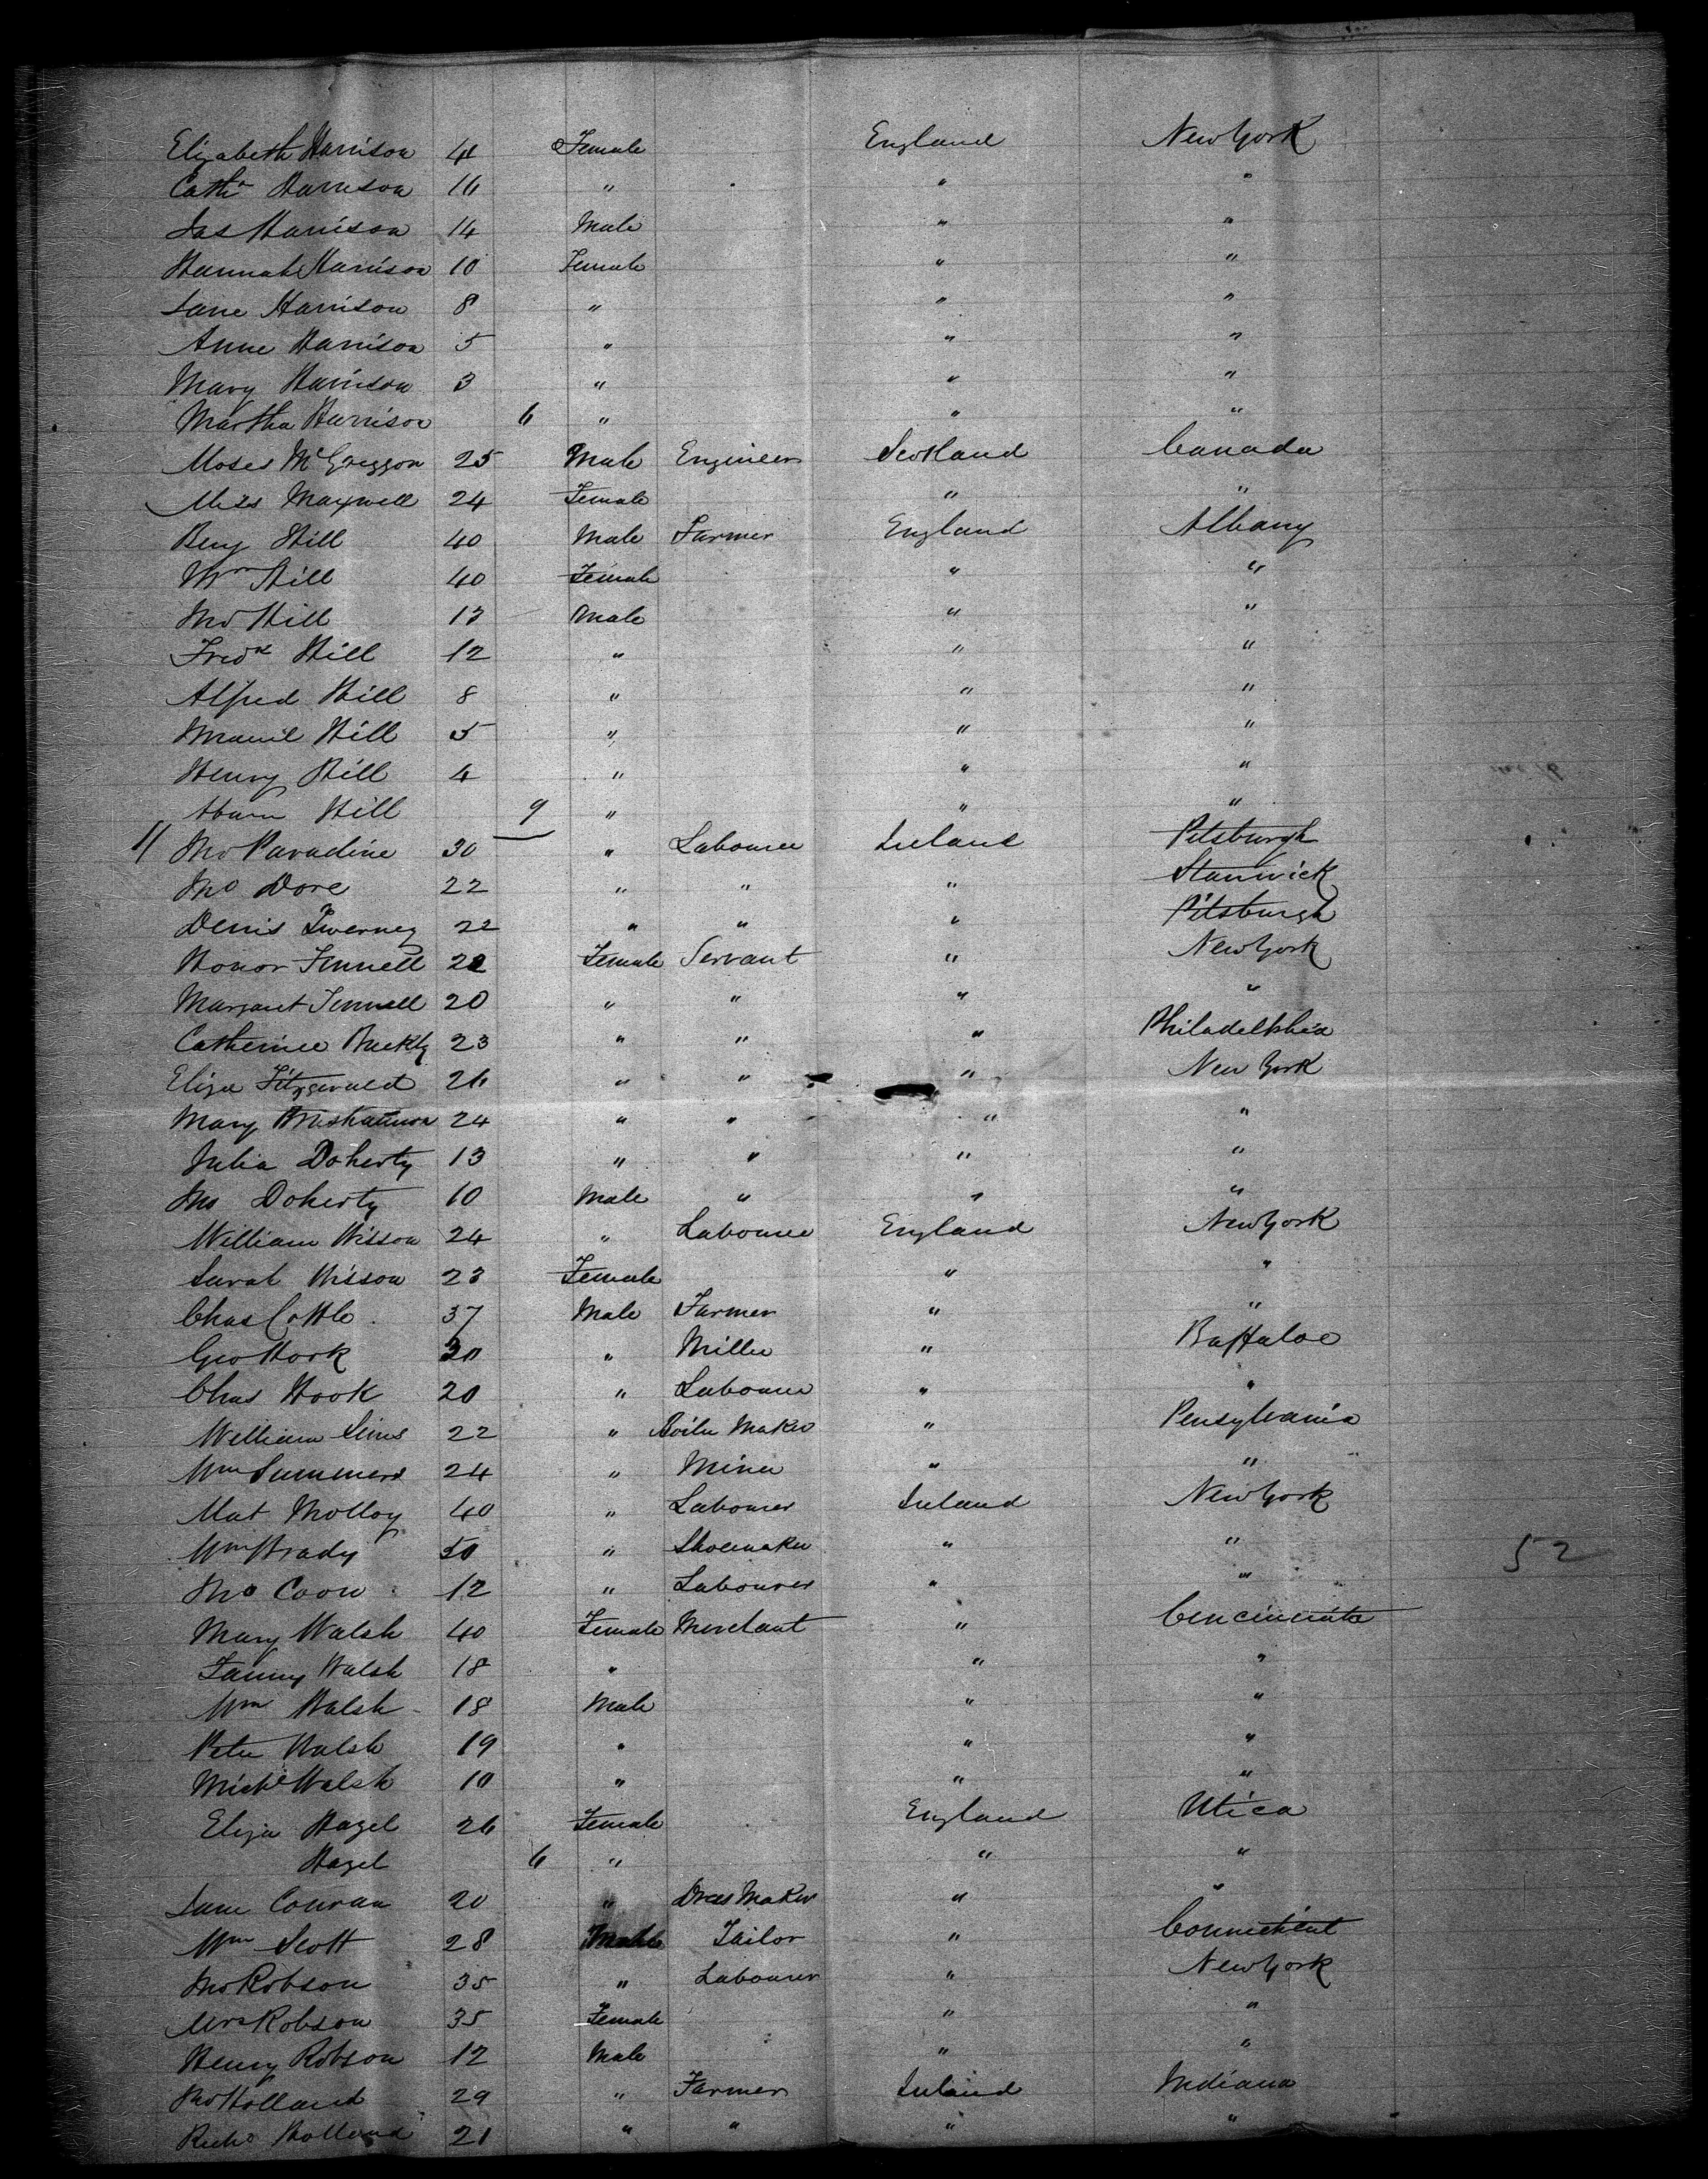 Elizabeth Harrison 41 Female England New York
Cath Harrison 16 " " "
Jas Harrison 14 Male " "
Hannah Harrison 10 Female " "
Jane Harrison 8 " " "
Anne Harrison 5 " " "
Mary Harrison 3 " " "
Martha Harrison 6 " " "
Moses McGreggor 25 Male Engineer Scotland Canada
Miss Maxwell 24 Female " "
Benj Hill 40 Male Farmer England Albany
Hill 40 Female " "
Jno Hill 13 Male " "
Fredk Hill 12 " " "
Alfred Hill 8 " " "
Hill 5 " " "
Henry Hill 4 " " "
Hill 9 " " "
11 Jno Paradine 30 " Labourer Ireland Pitsburgh
Jno Dore 22 " " " Stanwick
Denis Twerney 22 " " " Pitsburgh
Honor Fennell 22 Female Servant " New York
Margaret Fennell 20 " " " "
Catherine Buckly 23 " " " Philadelphia
Eliza Fitzgerald 26 " " " New York
Mary 24 " " " "
Julia Doherty 13 " " " "
Jno Doherty 10 Male " " "
William Wisson 24 " Labourer England New York
Sarah Wisson 23 Female " "
Chas Cottle 37 Male Farmer " "
Geo Hook 30 " Miller " Buffaloe
Chas Hook 20 " Labourer " "
William Sims 22 " Boiler Maker " Pensylvania
Wm Summers 24 " Miner " "
Mat Molloy 40 " Labourer Ireland New York
Wm Brady 50 " Shoemaker " "
Jno Coon 12 " Labourer " "
52
Mary Walsh 40 Female Merchant " Cencinnata
Fanny Walsh 18 " " "
Wm Walsh 18 Male " "
Peter Walsh 19 " " "
Michl Walsh 10 " " "
Eliza Hazel 26 Female England Utica
Hazel 6 " " "
Jane Conran 20 " Dress Maker " "
Wm Scott 28 Male Tailor " Connecticut
Jno Robson 35 " Labourer " New York
Mrs Robson 35 Female " "
Henry Robson 12 Male " "
Jno Holland 29 " Farmer Ireland Indiana
Richd Holland 21 " " " "